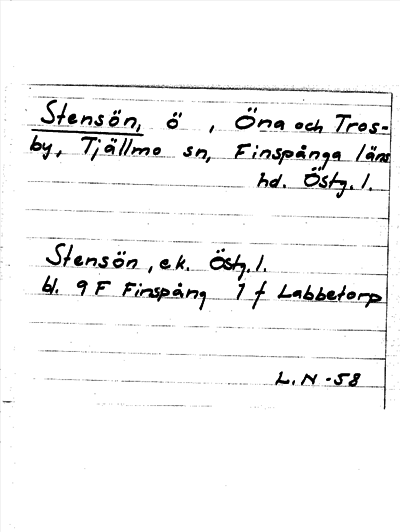 Stensön, ö , Öna och Tros-
by, Tjällmo sn, Finspånga läns
hd. Östg. l.
Stensön, ek. Östg. l.
bl. 9 F Finspång 7 f Labbetorp
L. N -58